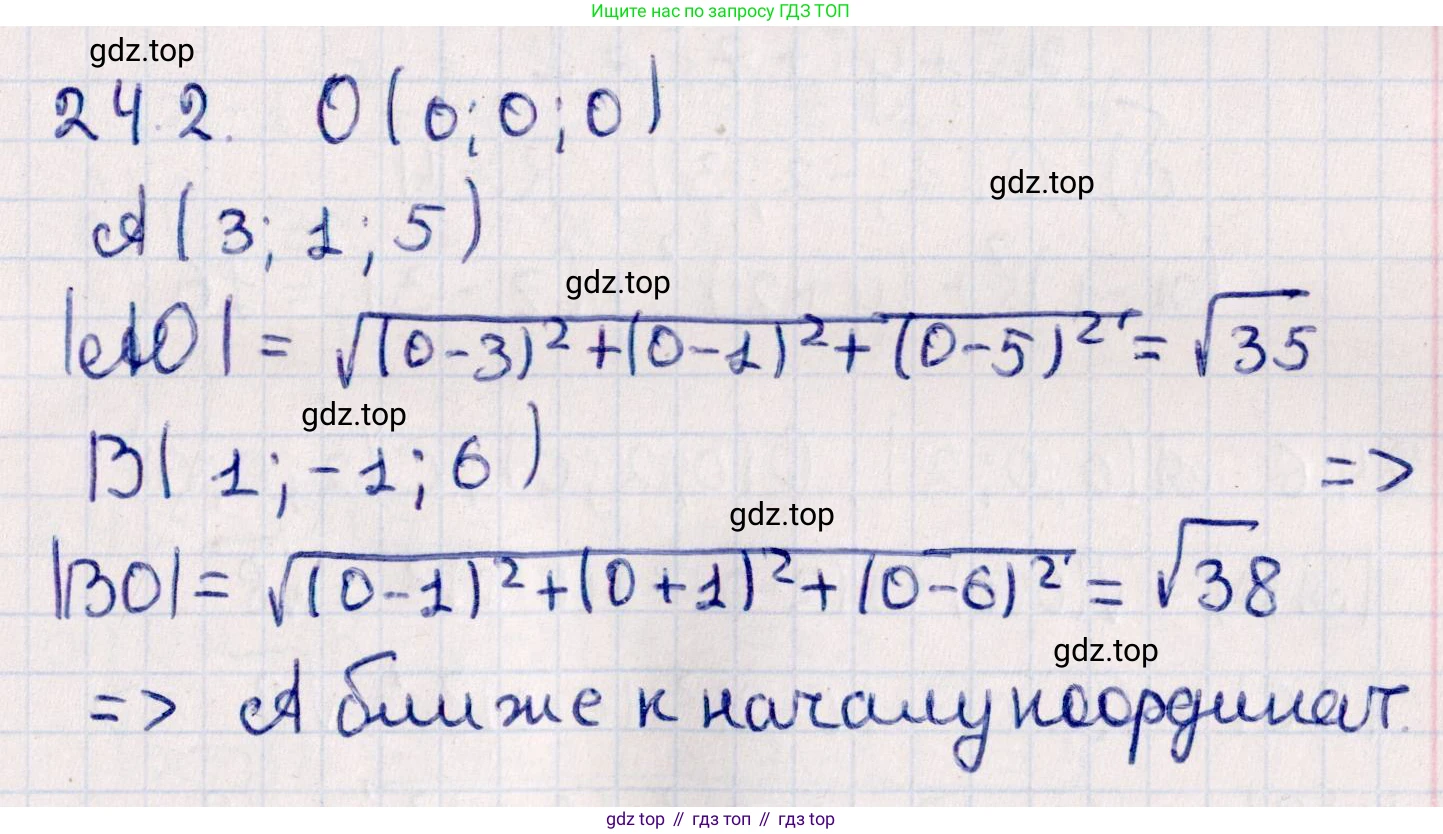 Ищите нас по запросу ГДЗ ТОП
gdz.top
24.2. O(0;0;0)
gdz.top
A(3;1;5)
gdz.top
|AO| = √(0-3)²+(0-1)²+(0-5)² = √35
gdz.top
B(1;-1;6) =>
gdz.top
|BO| = √(0-1)²+(0+1)²+(0-6)² = √38
gdz.top
=> A ближе к началу координат.
gdz top // гдз топ // гдз top